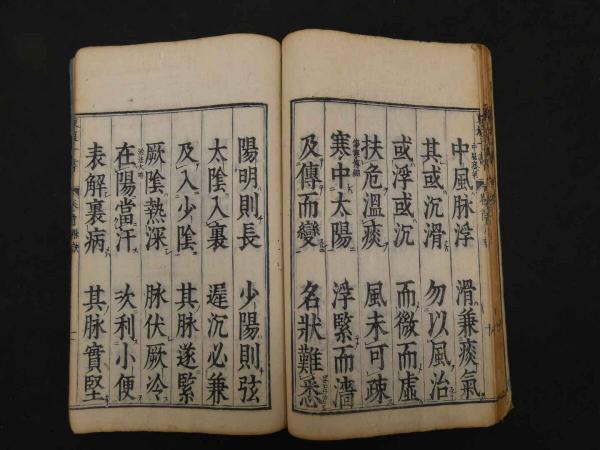 中風脉浮 滑兼痰氣
其或沉滑 勿以風治
或浮或沉 而微而虛
扶危溫痰 風未可疎
寒中太陽 浮緊而濇
及傳而變 名狀難悉
陽明則長 少陽則弦
太陰入裏 遲沉必兼
及入少陰 其脉遂緊
厥陰熱深 脉伏厥冷
在陽當汗 次利小便
表解裏病 其脉實堅